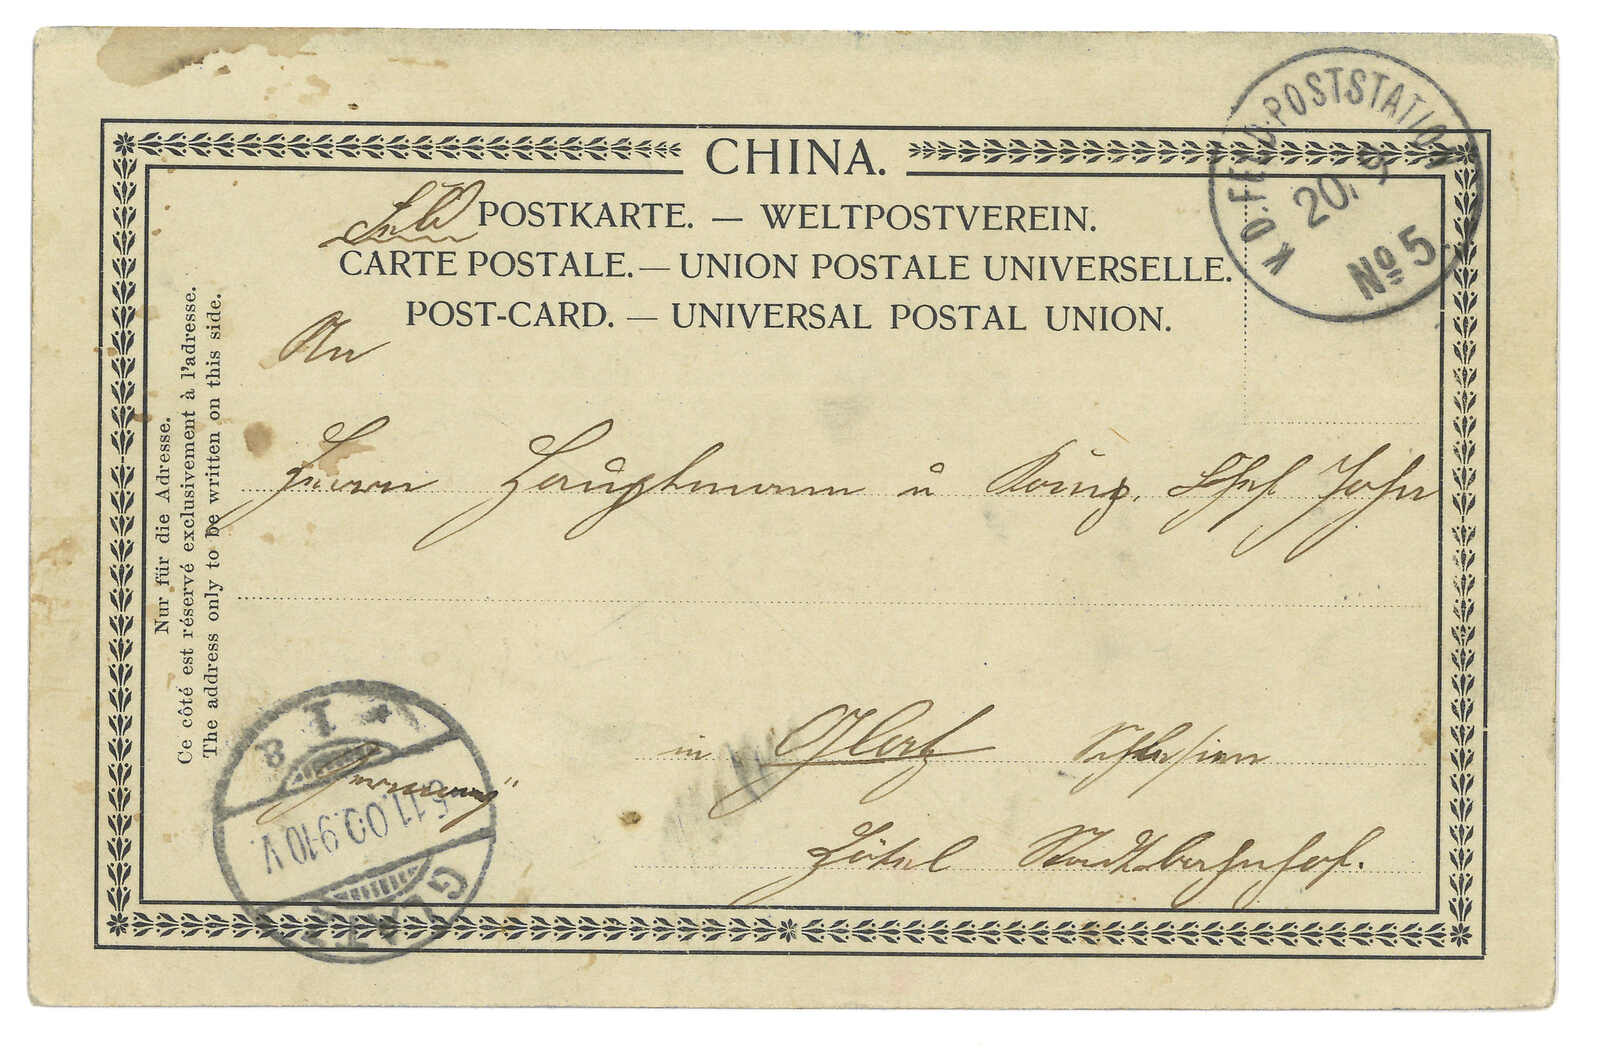 CHINA.
Feld POSTKARTE. — WELTPOSTVEREIN.
CARTE POSTALE. — UNION POSTALE UNIVERSELLE.
POST-CARD. — UNIVERSAL POSTAL UNION.
K.D.FELD-POSTSTATION
20. 9
No 5
Nur für die Adresse.
Ce côté est réservé exclusivement à l'adresse.
The address only to be written on this side.
An
Herrn Hauptmann u König.
in Glatz Schlesien
Hôtel Stadtbahnhof.
Germany"
GLATZ
5.11.00.9-10 V.